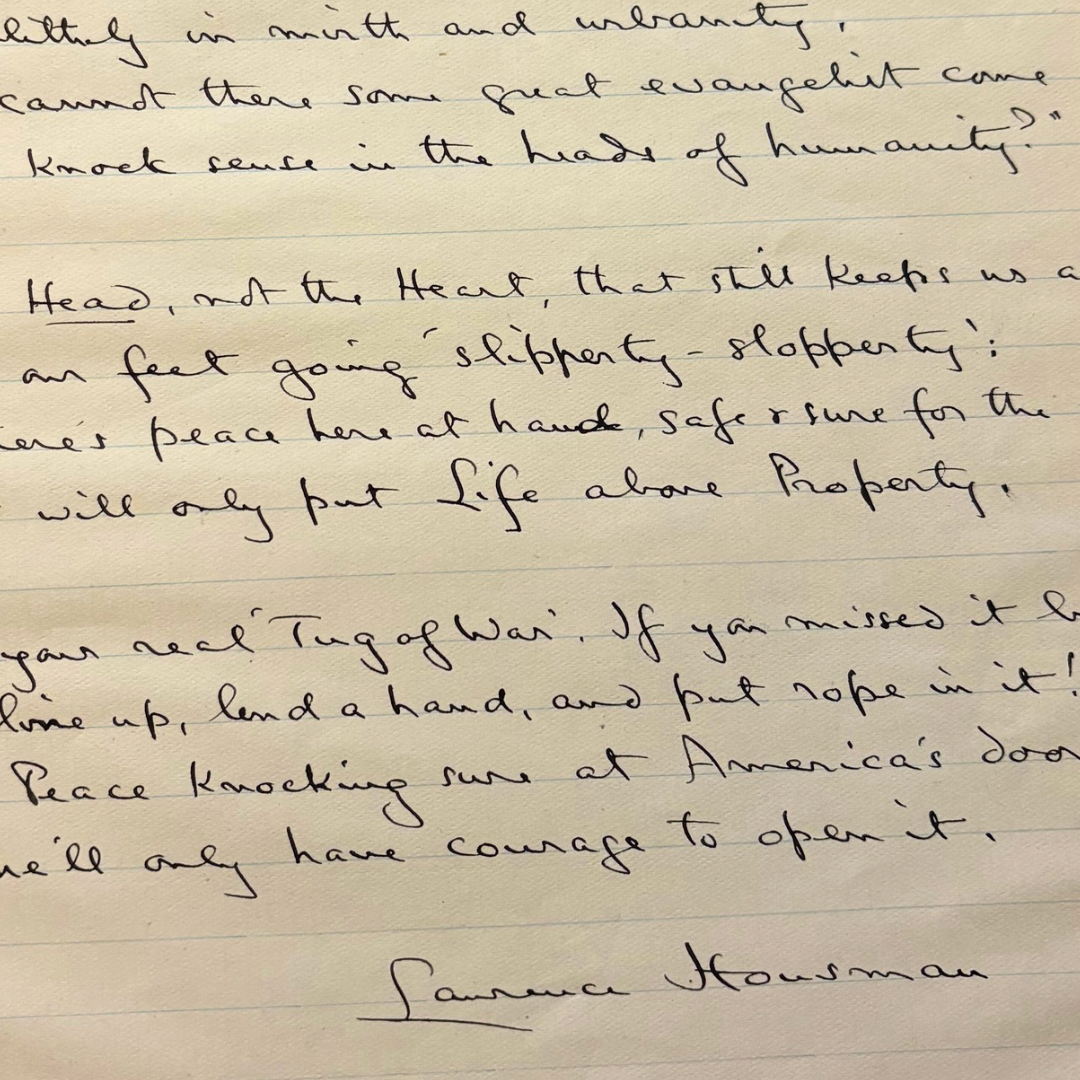 blithely in mirth and urbanity,
cannot there some great evangelist come
knock sense in the heads of humanity?"
Head, not the Heart, that still keeps us a
our feet going 'slipperty-slopperty':
here's peace here at hand, safe & sure for the
will only put Life above Property.
your real 'Tug of War'. If you missed it b
line up, lend a hand, and put rope in it!
Peace knocking sure at America's door
he'll only have courage to open it.
Laurence Housman